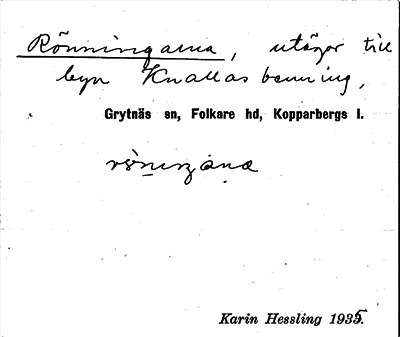 Rönningarna, utägor till
byn Knallasbenning,
Grytnäs sn, Folkare hd, Kopparbergs l.
Karin Hessling 1935.